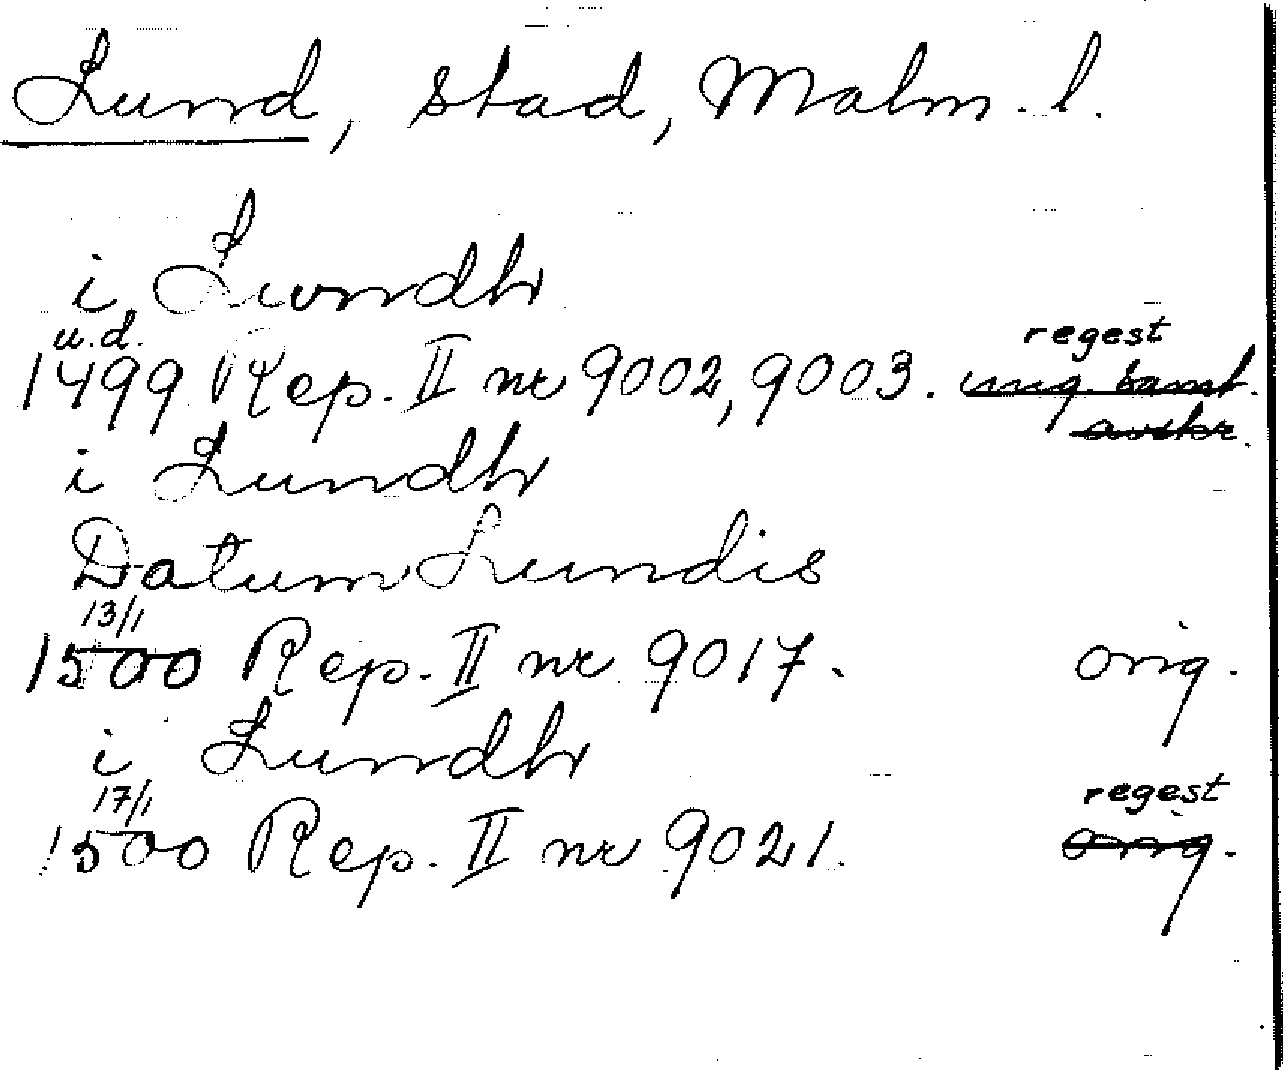 Lund, stad, Malm. l.
i Lundh
u.d. regest
1499 Rep. II nr 9002, 9003. ung. samt.
avskr.
i Lundh
Datum Lundis
13/1
1500 Rep. II nr 9017. orig.
i Lundh
17/1 regest
1500 Rep. II nr 9021. orig.